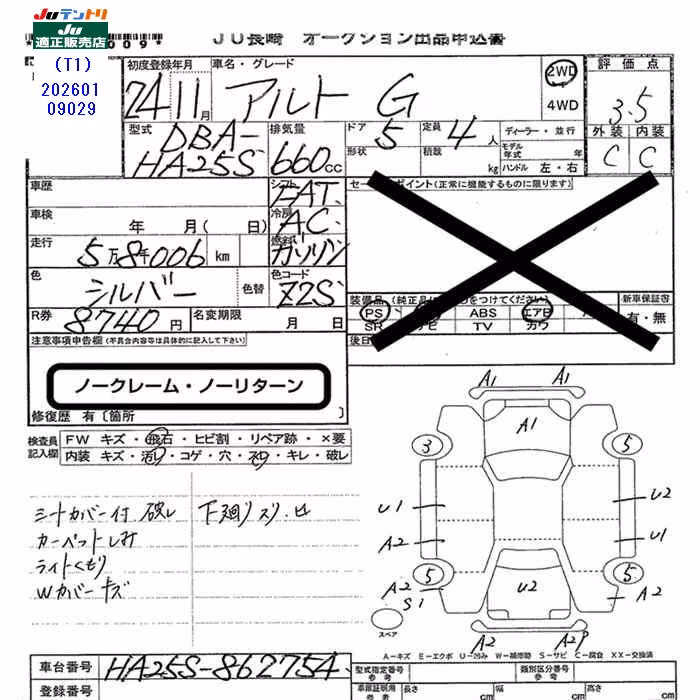 JUテントリ
JU
適正販売店
009*
JU長崎 オークション出品申込書
(T1)
202601
09029
初度登録年月 車名・グレード 2WD 評価点
24 11月 アルト G 4WD 3.5
型式 排気量 ドア 定員 ディーラー・並行 外装 内装
DBA- 5 4人 モデル年式 年 C C
HA25S 660cc 形状 積載 kg ハンドル 左・右
車歴 シフト FAT セールスポイント(正常に機能するものに限ります)
車検 年 月( 日) 冷房 AC
走行 5万8千006 km 燃料 ガソリン
色 シルバー 色替 色コード Z2S
装備品 新車保証書
PS ABS エアB 有・無
SR ナビ TV カワ
R券 8740円 名変期限 月 日
後日
注意事項申告欄(不具合内容等は具体的に記入して下さい)
ノークレーム・ノーリターン
修復歴 有〔箇所 〕
検査員 FW キズ・飛石・ヒビ割・リペア跡・×要
記入欄 内装 キズ・汚れ・コゲ・穴・スレ・キレ・破レ
シートカバー付 破レ 下廻りスリ、凹
カーペットしみ
ライトくもり
Wカバーキズ
A1 A1
A1
3 5
U1 U2
A2 U1
5 5
A2 U2 A2
S1
スペア
A2 A2P
A-キズ E-エクボ U-凹み W-補修跡 S-サビ C-腐食 XX-交換済
車台番号 HA25S-862754 型式指定番号 類別区分番号
登録番号 車庫証明用 長さ cm 幅 cm 高さ cm